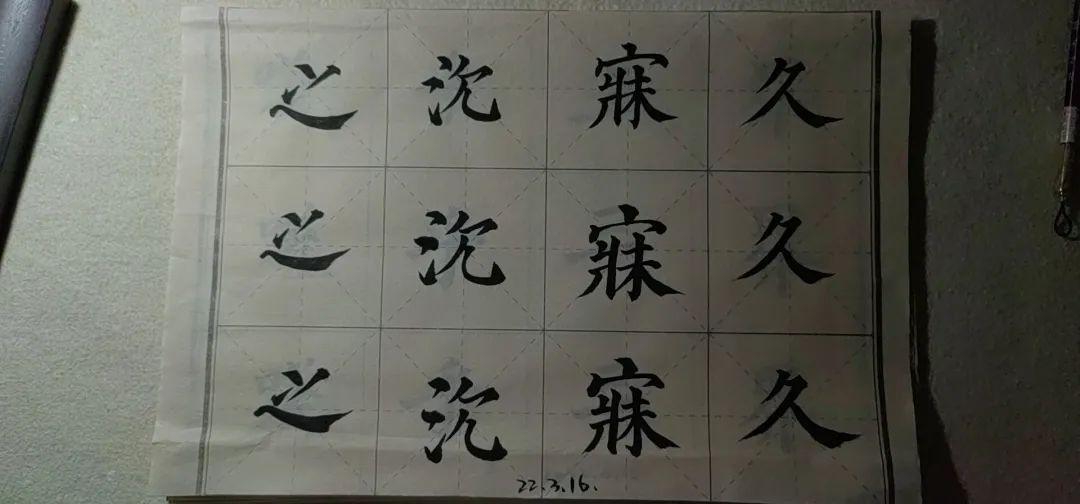 久久久
寐寐寐
沉沉沉
之之之
22.3.16.